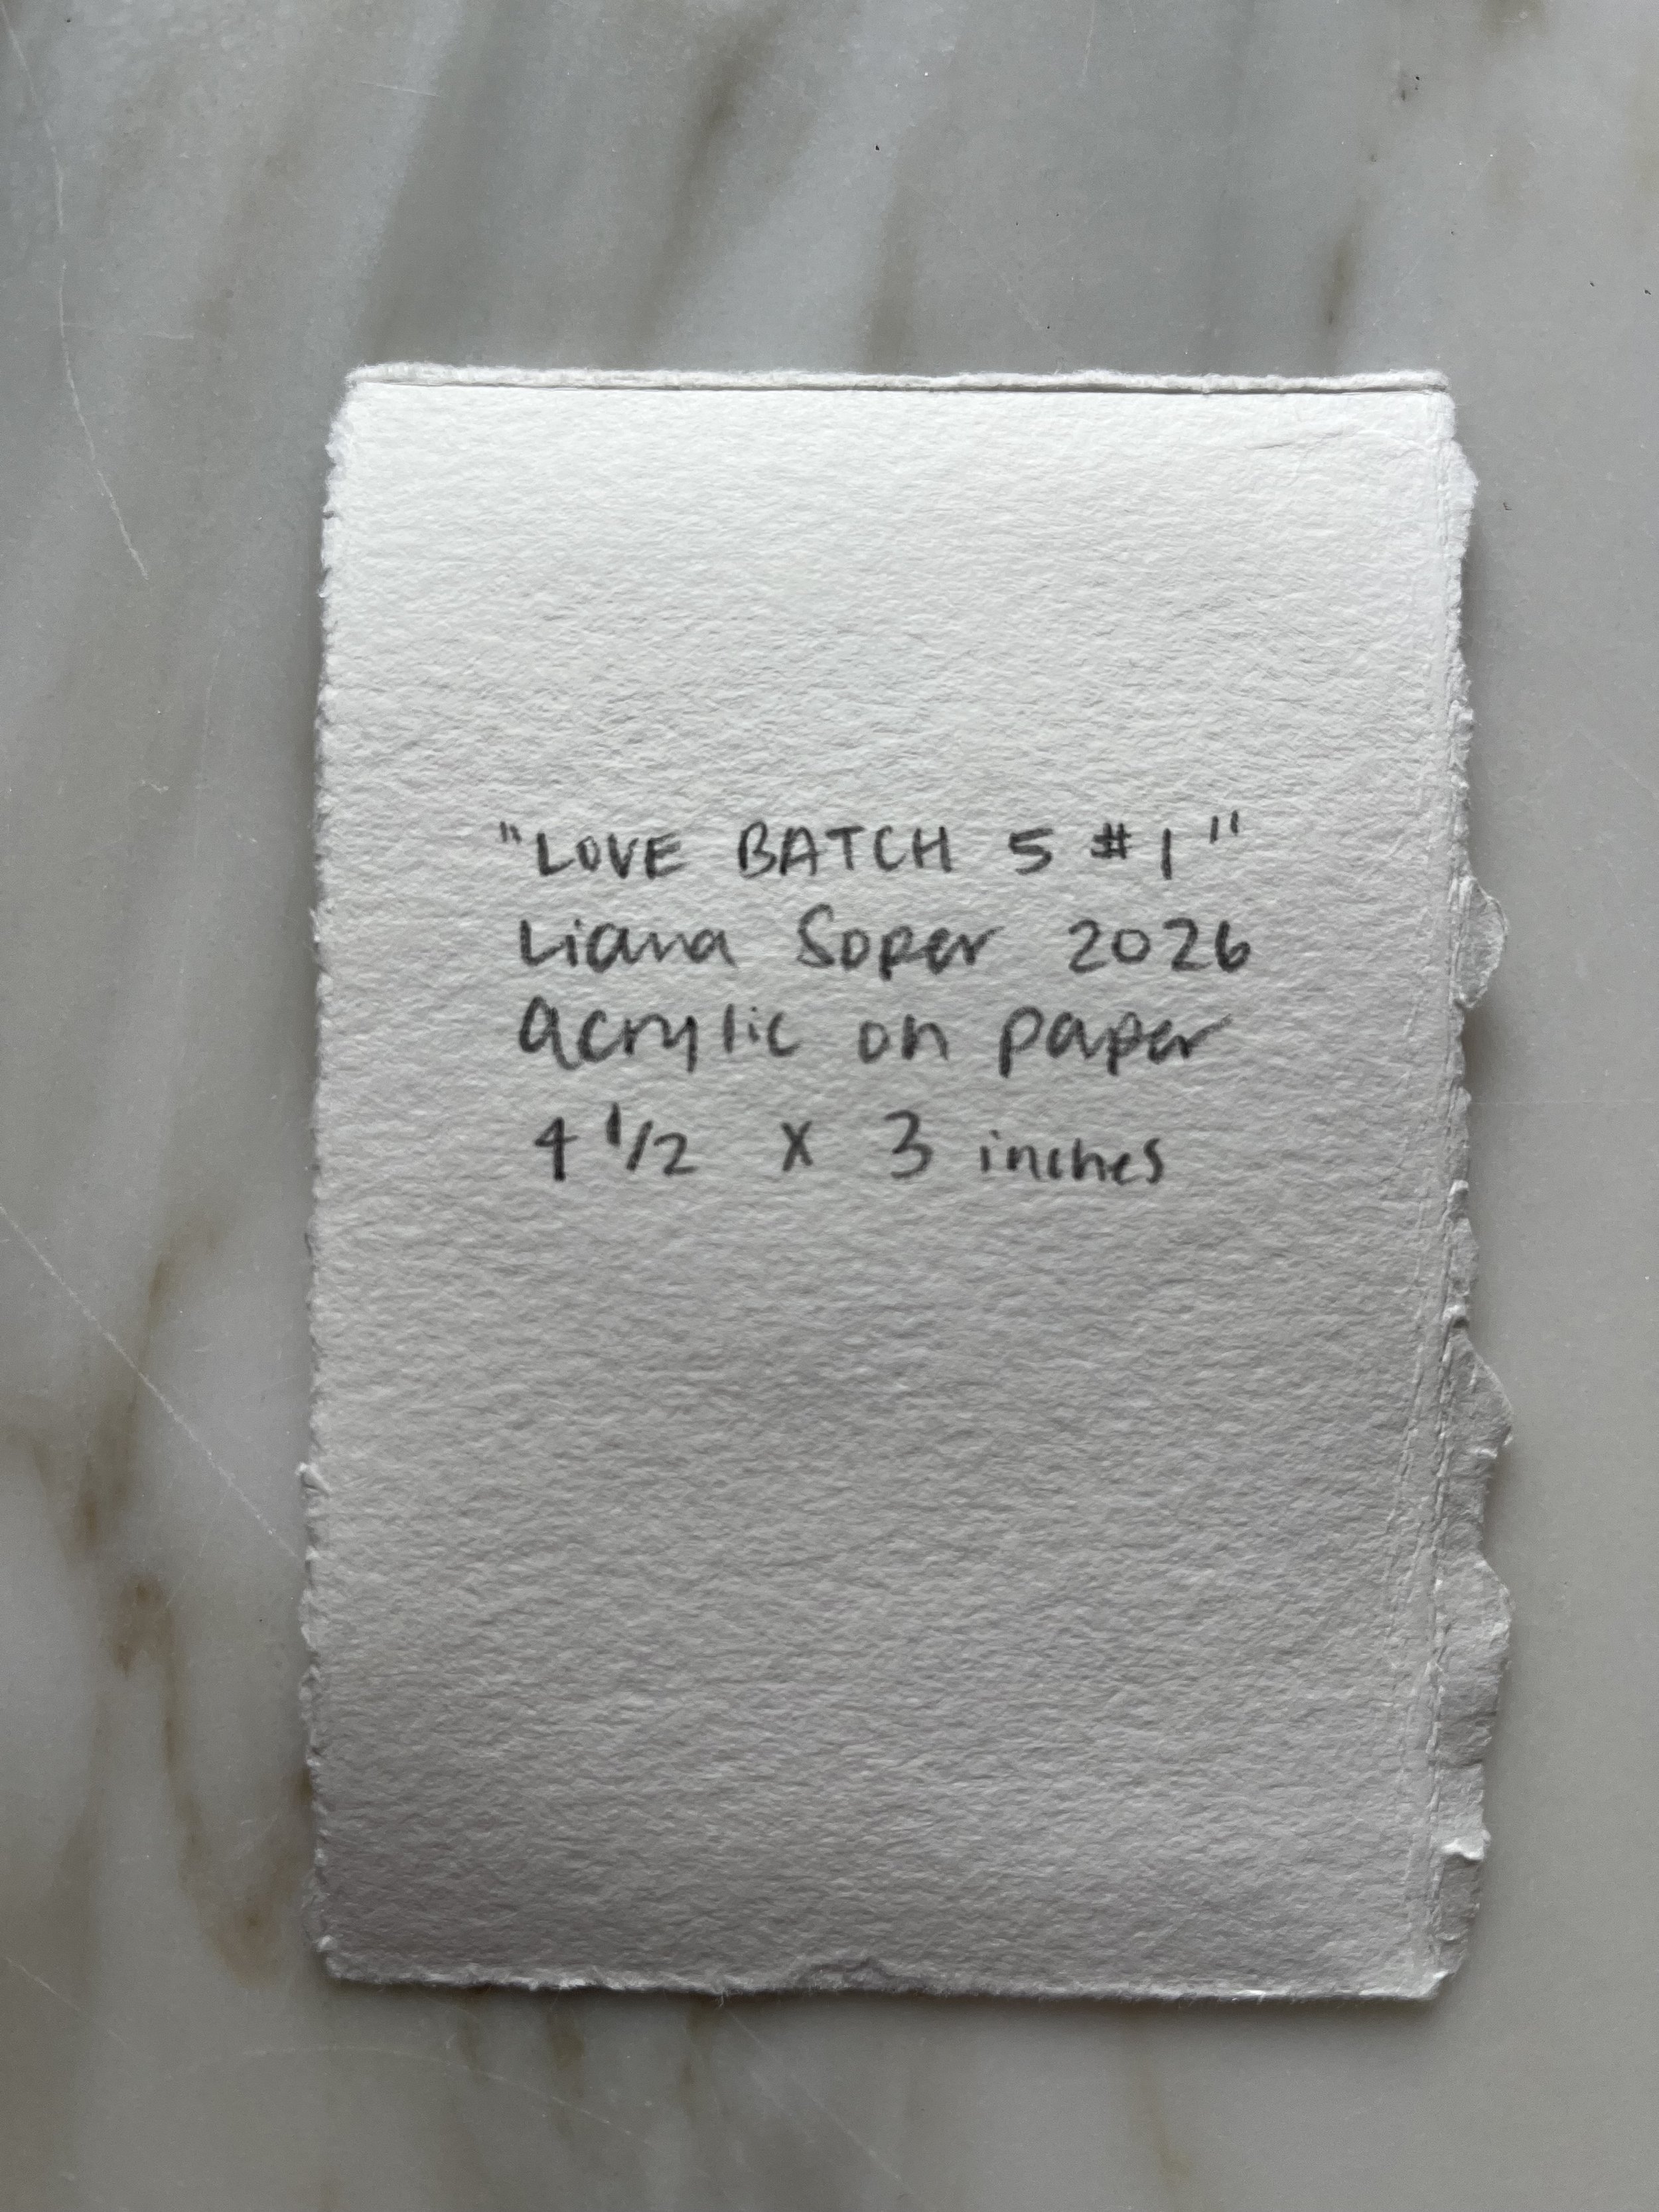 "LOVE BATCH 5 #1"
Liana Soper 2026
acrylic on paper
4 1/2 x 3 inches